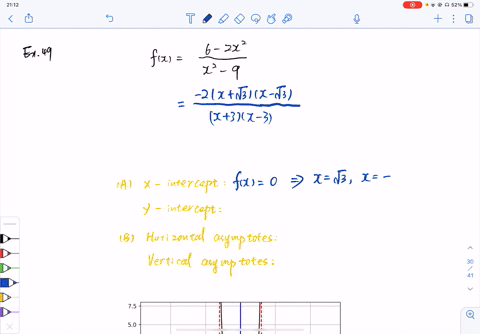 21:12
52%
Ex.49
f(x) = 6 - 2x² / x² - 9
= -2(x+√3)(x-√3) / (x+3)(x-3)
(A) x - intercept: f(x) = 0 ⇒ x = √3, x = -
Y - intercept:
(B) Horizontal asymptotes:
Vertical asymptotes:
30
/
41
7.5
5.0